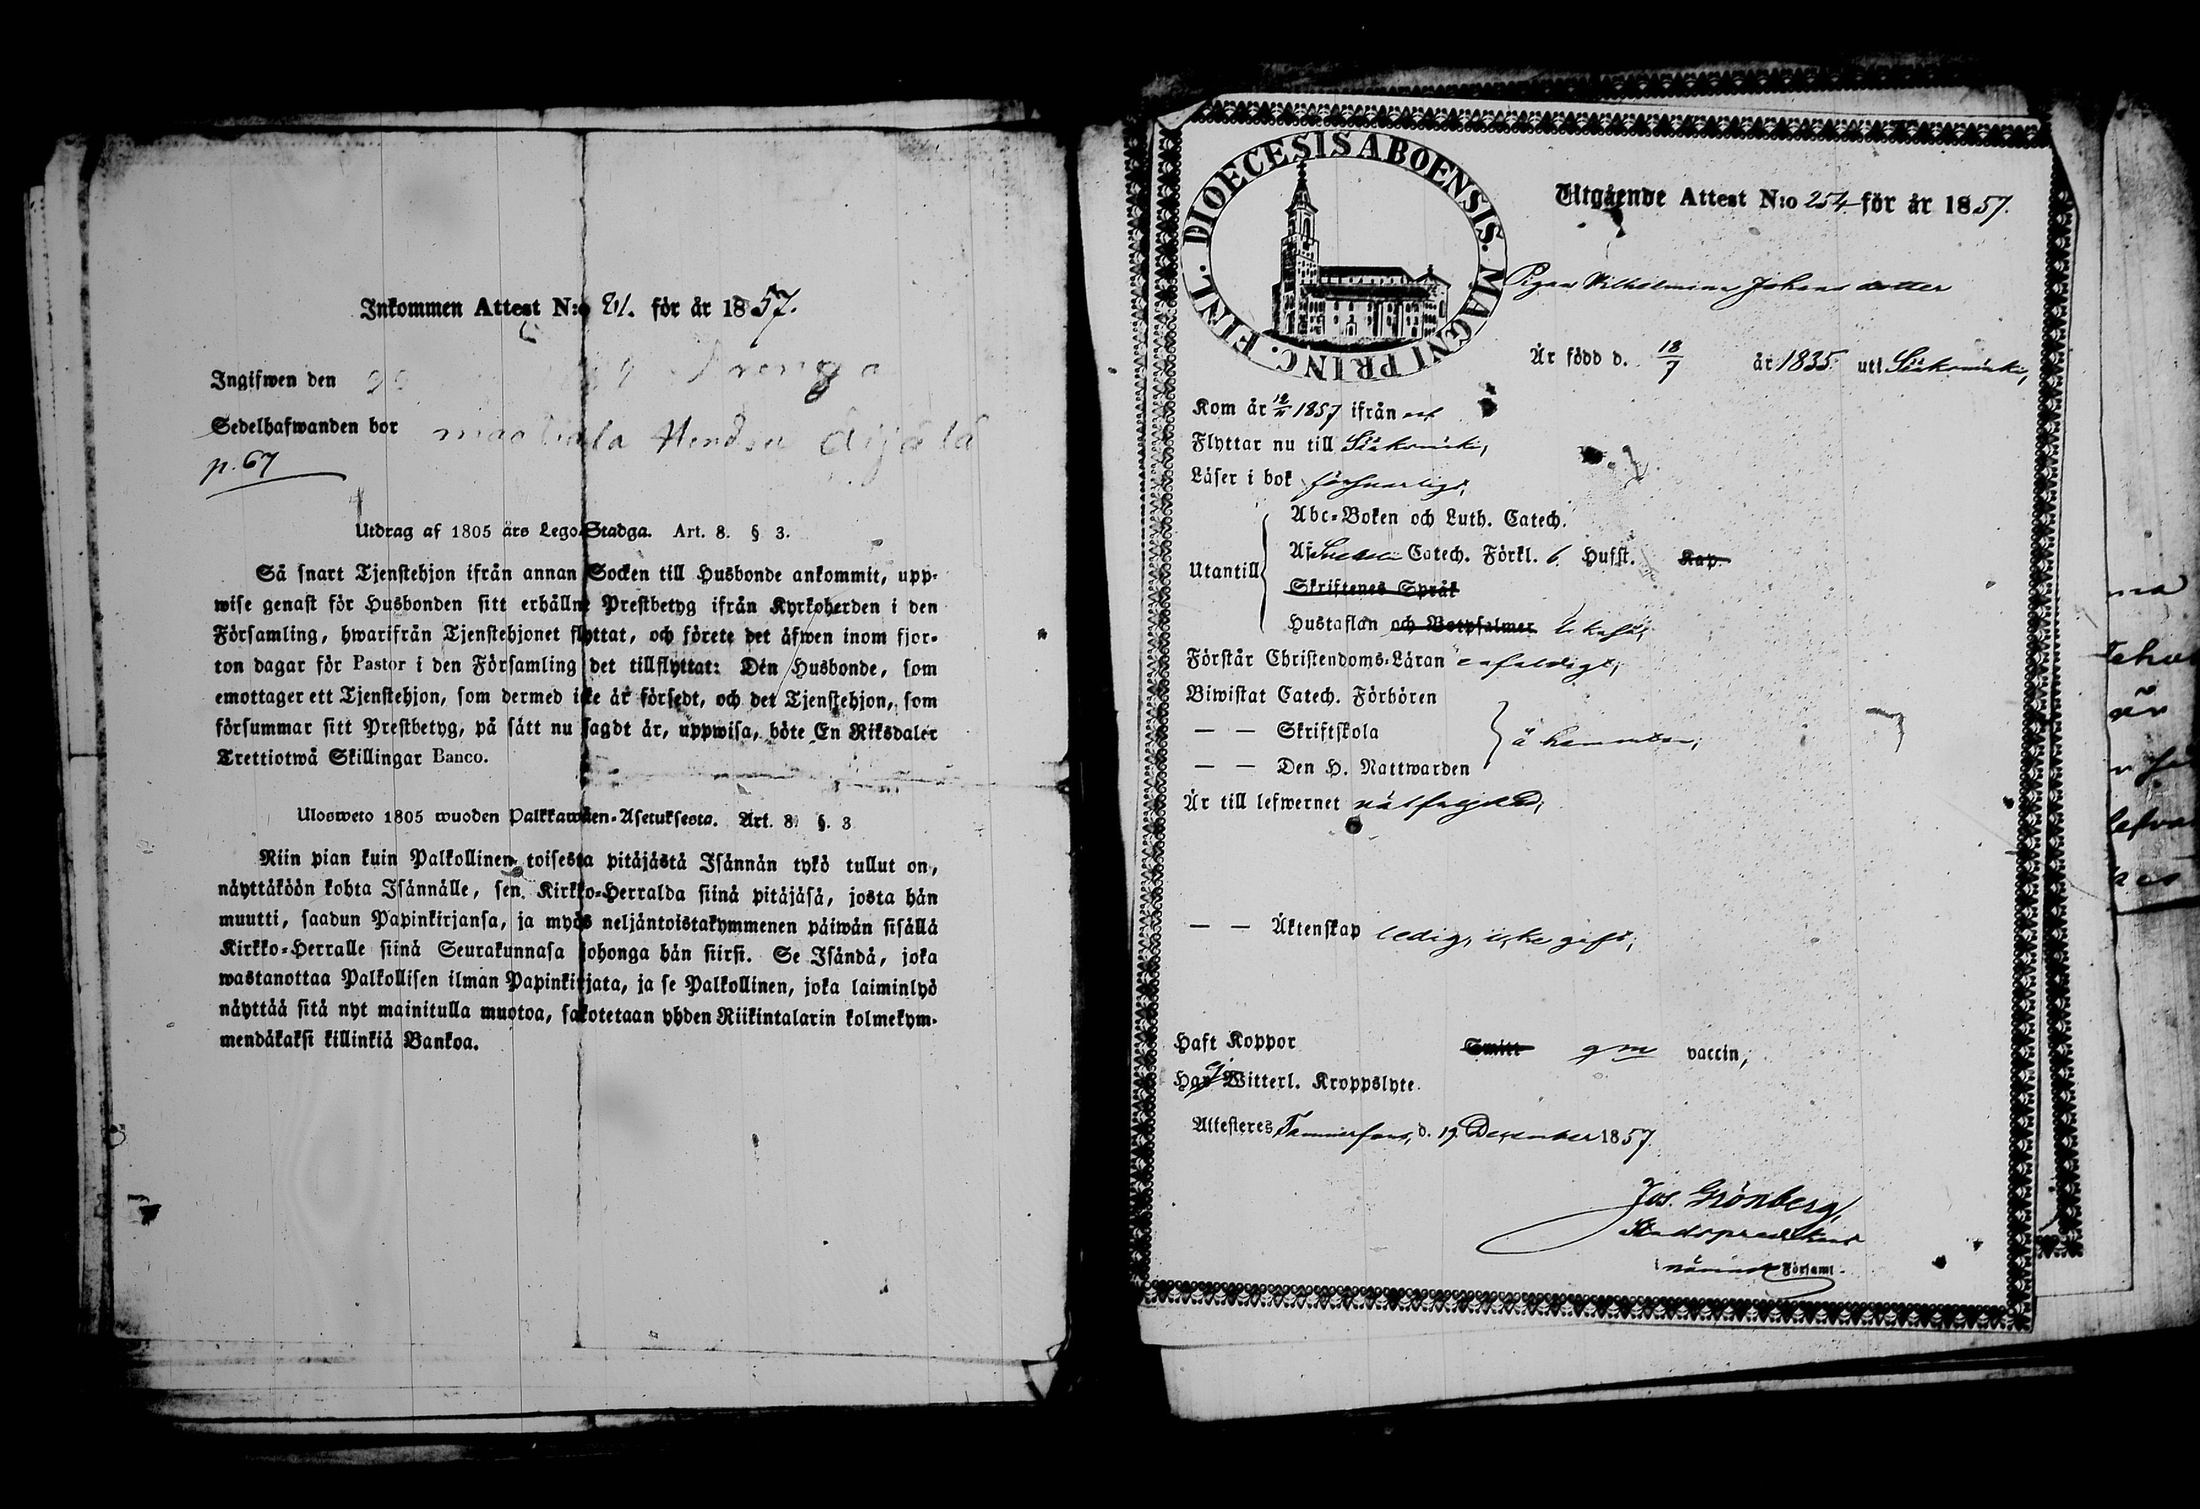 Inkommen Attest N:o 81. för år 1857.
Ingifwen den
Sedelhafwanden bor
p. 67
Utdrag af 1805 års Lego-Stadga. Art. 8. § 3.
Så snart Tjenstehjon ifrån annan Socken till Husbonde ankommit, upp-
wise genast för Husbonden sitt erhållne Prestbetyg ifrån Kyrkoherden i den
Församling, hwarifrån Tjenstehjonet flyttat, och förete det äfwen inom fjor-
ton dagar för Pastor i den Församling det tillflyttat: Den Husbonde, som
emottager ett Tjenstehjon, som dermed icke är försedt, och det Tjenstehjon, som
försummar sitt Prestbetyg, på sätt nu sagdt är, uppwisa, böte En Riksdaler
Trettiotwå Skillingar Banco.
Ulosweto 1805 wuoden Palkkawäen-Asetuksesta. Art. 8. §. 3
Niin pian kuin Palkollinen toisesta pitäjästä Isännän tykö tullut on,
näyttäköön kohta Isännälle, sen Kirkko-Herralda siinä pitäjäsä, josta hän
muutti, saadun Papinkirjansa, ja myös neljäntoistakymmenen päiwän sisällä
Kirkko-Herralle siinä Seurakunnasa johonga hän siirsi. Se Isändä, joka
wastanottaa Palkollisen ilman Papinkirjata, ja se Palkollinen, joka laiminlyö
näyttää sitä nyt mainitulla muotoa, sakotetaan yhden Riikintalarin kolmekym-
mendäkaksi killinkiä Bankoa.
DIOECESIS ABOENSIS. MAGNI PRINC. FINL.
Utgående Attest N:o 254 för år 1857.
Pigan Vilhelmina Johansdotter
Är född d. 18/7 år 1835. uti
Kom år 1857 ifrån
Flyttar nu till
Läser i bok försvarligt,
Abc-Boken och Luth. Catech.
Af Svebelii Catech. Förkl. 6. Hufst. Kap.
Utantill
Skriftenes Språk
Hustaflan och Botpsalmer
Förstår Christendoms-Läran enfaldigt,
Biwistat Catech. Förhören
— — Skriftskola
— — Den H. Nattwarden
Är till lefwernet välfrejdad,
— — Äktenskap ledig, icke gift,
Haft Koppor Smitt gm vaccin,
Har Ej Witterl. Kroppslyte.
Attesteres Tammerfors, d. 19 December 1857
Jos. Grönberg,
Stadspredikant
i Församl.